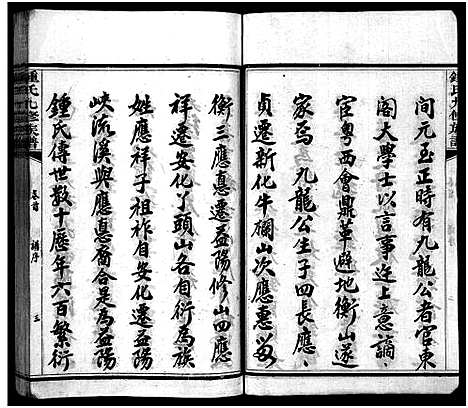 間元至正時有九龍公者官東
閣大學士以言事迕上意謫
宦粵西會鼎革避地衡山遂
家焉九龍公生子四長應
貞遷新化牛欄山次應惠留
衡三應惪遷益陽修山四應
祥遷安化了頭山各自衍為族
姓應祥子祖祚自安化遷益陽
峽流溪與應惪裔合是為益陽
鍾氏傳世數十歷年六百繁衍
鍾氏九修族譜
卷首
譜序
三